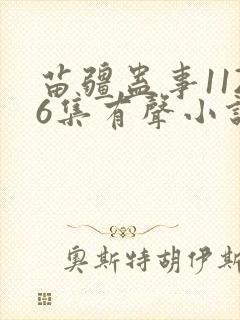 苗疆蛊事11
6集有聲小
奧斯特胡伊斯